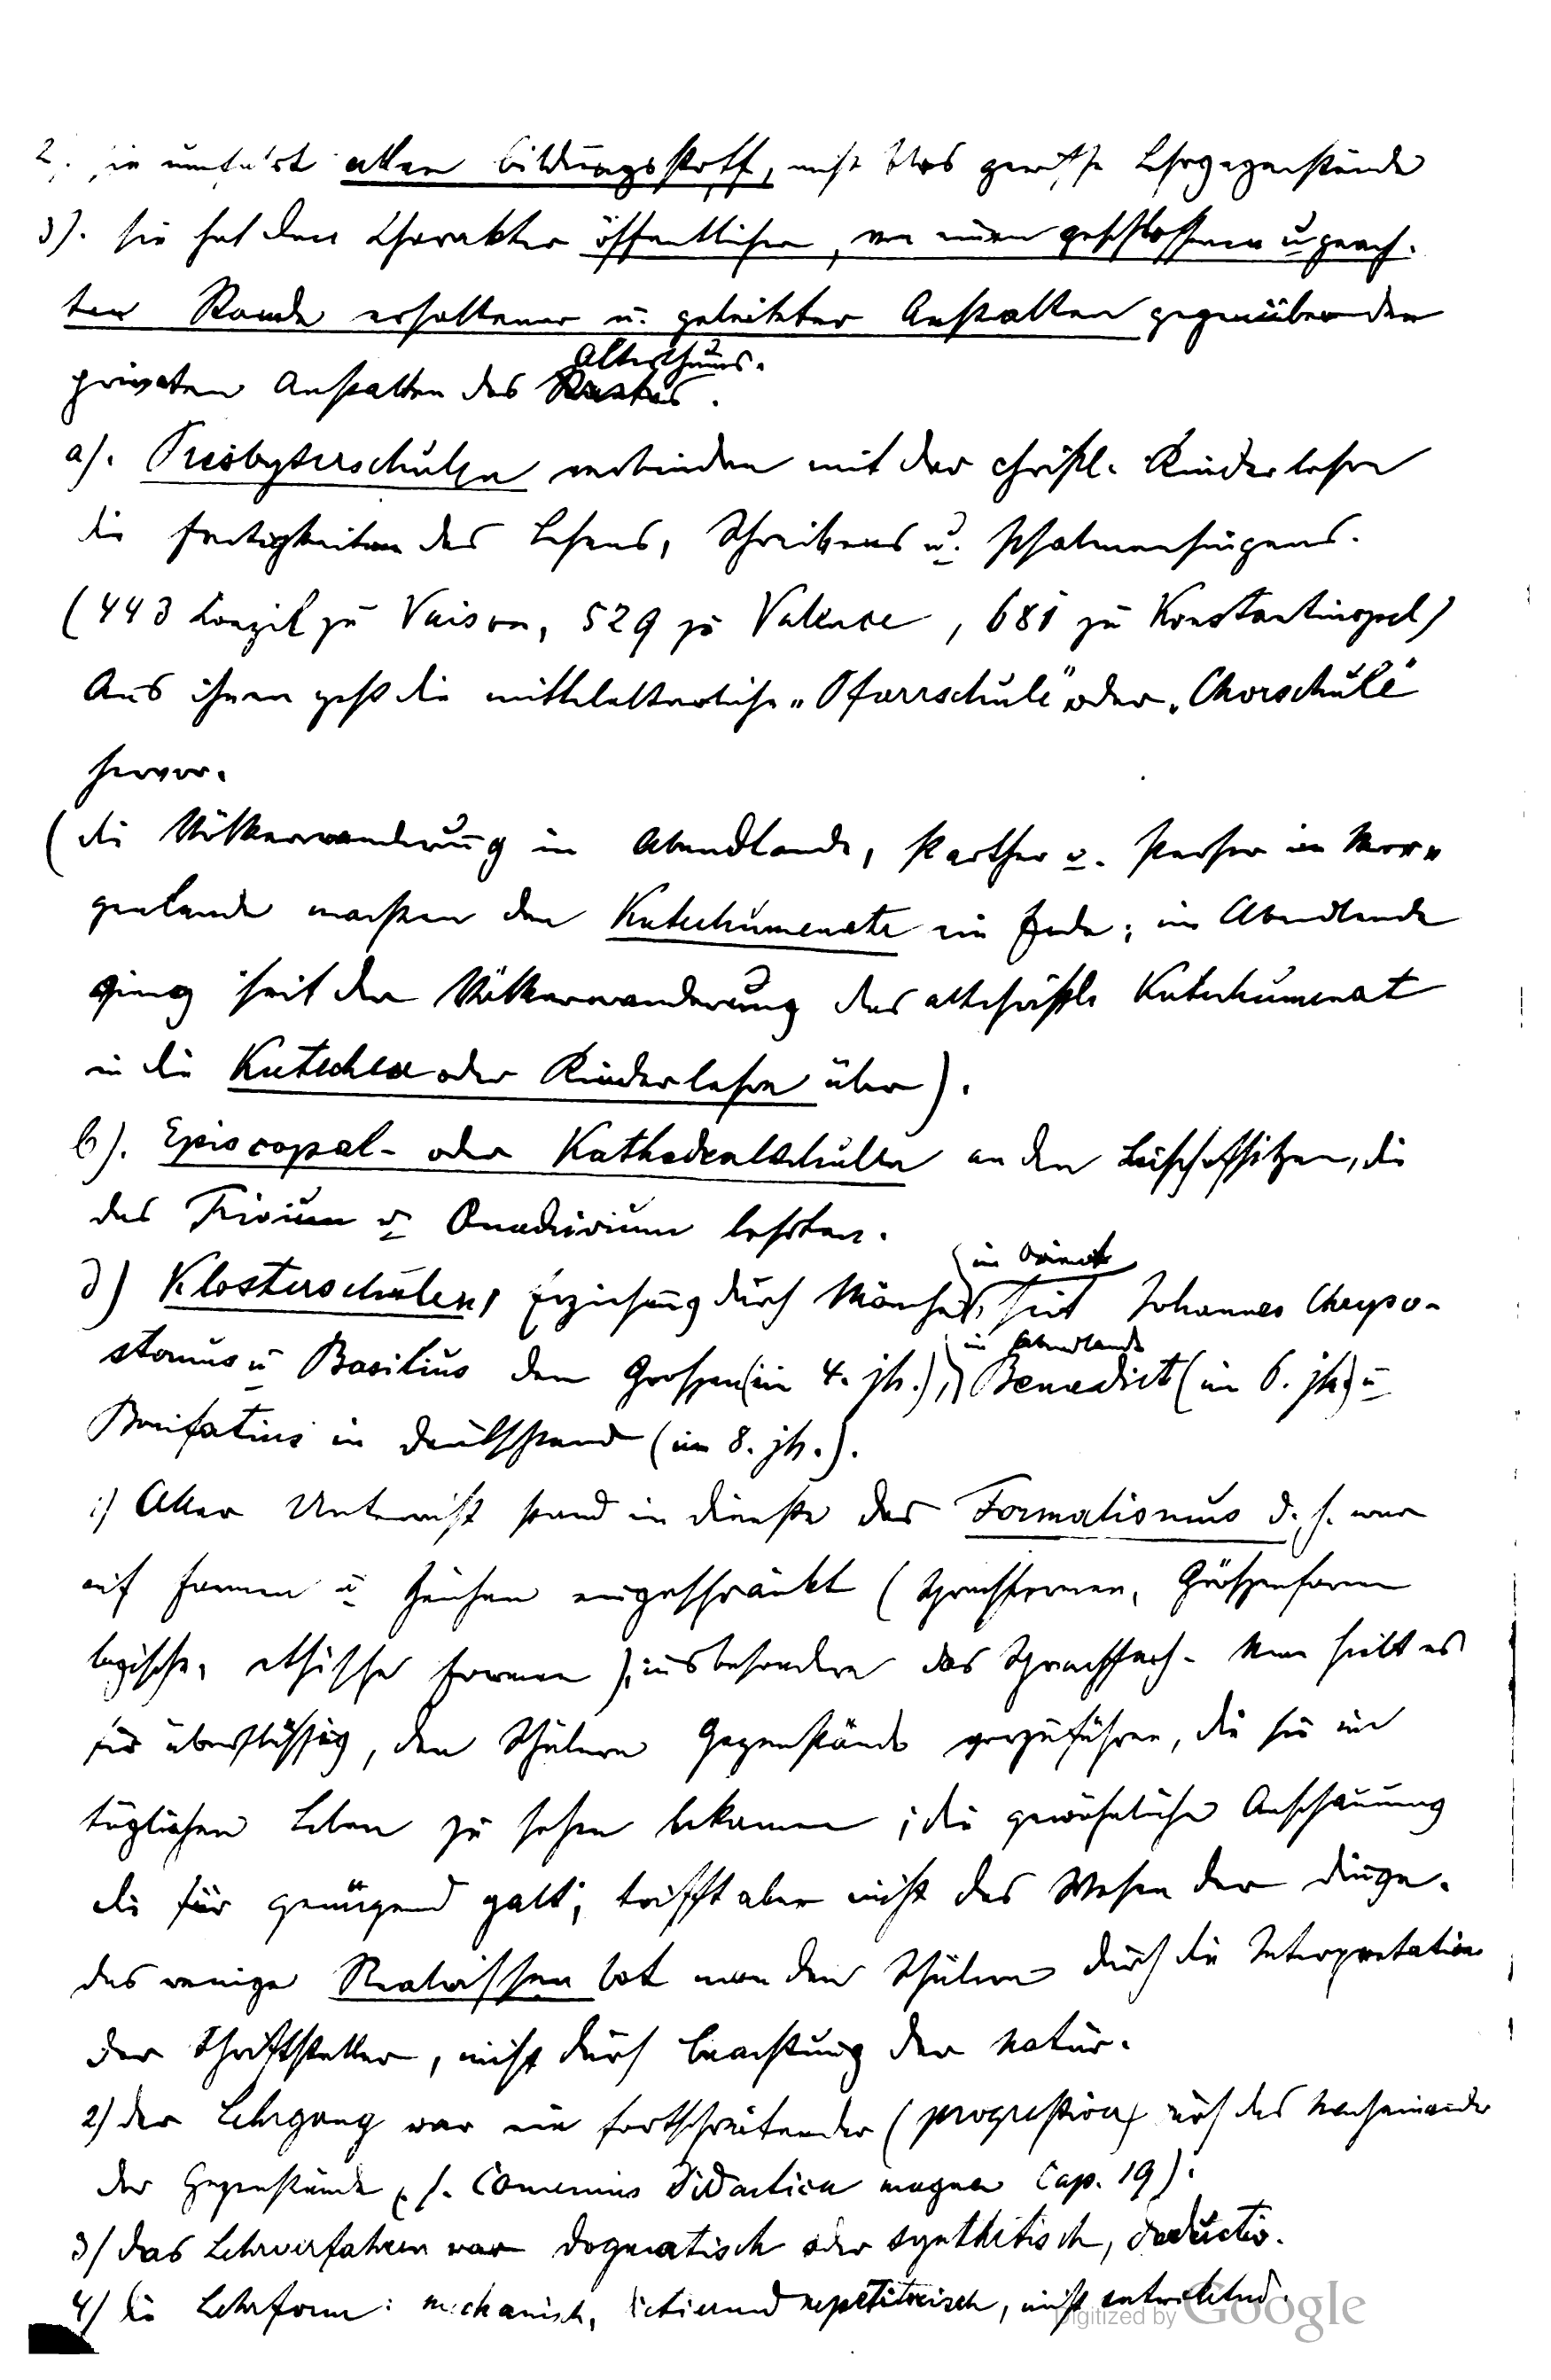 2). sie umfasst allen Bildungsstoff, nicht blos gewisse Lehrgegenstände
3). sie hat den Charakter öffentlicher, von einem geschlossenen u geach-
ten Stande erhaltener u. geleiteter Anstalten gegenüber den
Alterthums.
privaten Anstalten des Staates.
a). Presbyterschulen verbinden mit der christl. Kinderlehre
die Fertigkeiten des Lesens, Schreibens u. Psalmensingens.
(443 Konzil zu Vaison, 529 zu Valence, 681 zu Konstantinopel)
Aus ihnen geht die mittelalterliche „Pfarrschule" oder „Chorschule"
hervor.
(die Völkerwanderung im Abendlande, Parther u. Perser im Mor-
genlande machten dem Katechumenate ein Ende; im Abendlande
ging seit der Völkerwanderung das altchristl. Katechumenat
in die Katechese oder Kinderlehre über).
b). Episcopal- oder Kathedralschulen an den Bischofssitzen, die
das Trivium u Quadrivium lehrten.
im Orient
d) Klosterschulen, Erziehung durch Mönche, seit Johannes Chryso-
im Abendlande
stomus u Basilius dem Grossen (im 4. Jh.), Benedict (im 6. Jh.) u
Bonifatius in Deutschland (im 8. Jh.).
1) Aller Unterricht stand im Dienste des Formalismus d. h. war
auf Formen u Zeichen eingeschränkt (Sprachformen, Größenformen
logische, ethische Formen), insbesondere das Sprachfach. Man hielt es
für überflüssig, den Schülern Gegenstände vorzuführen, die sie im
täglichen Leben zu sehen bekamen; die gewöhnliche Anschauung
die für genügend galt, trifft aber nicht das Wesen der Dinge.
das wenige Realwissen bot man den Schülern durch die Interpretation
der Schriftsteller, nicht durch Beachtung der Natur.
2) der Lehrgang war ein fortschreitender (progressiver) durch das Nacheinander
der Gegenstände (s. Comenius Didactica magna Cap. 19).
3) das Lehrverfahren war dogmatisch oder synthetisch, deductiv.
4) die Lehrform: mechanisch, dictierend repetitorisch, nicht entwickelnd.
Digitized by Google